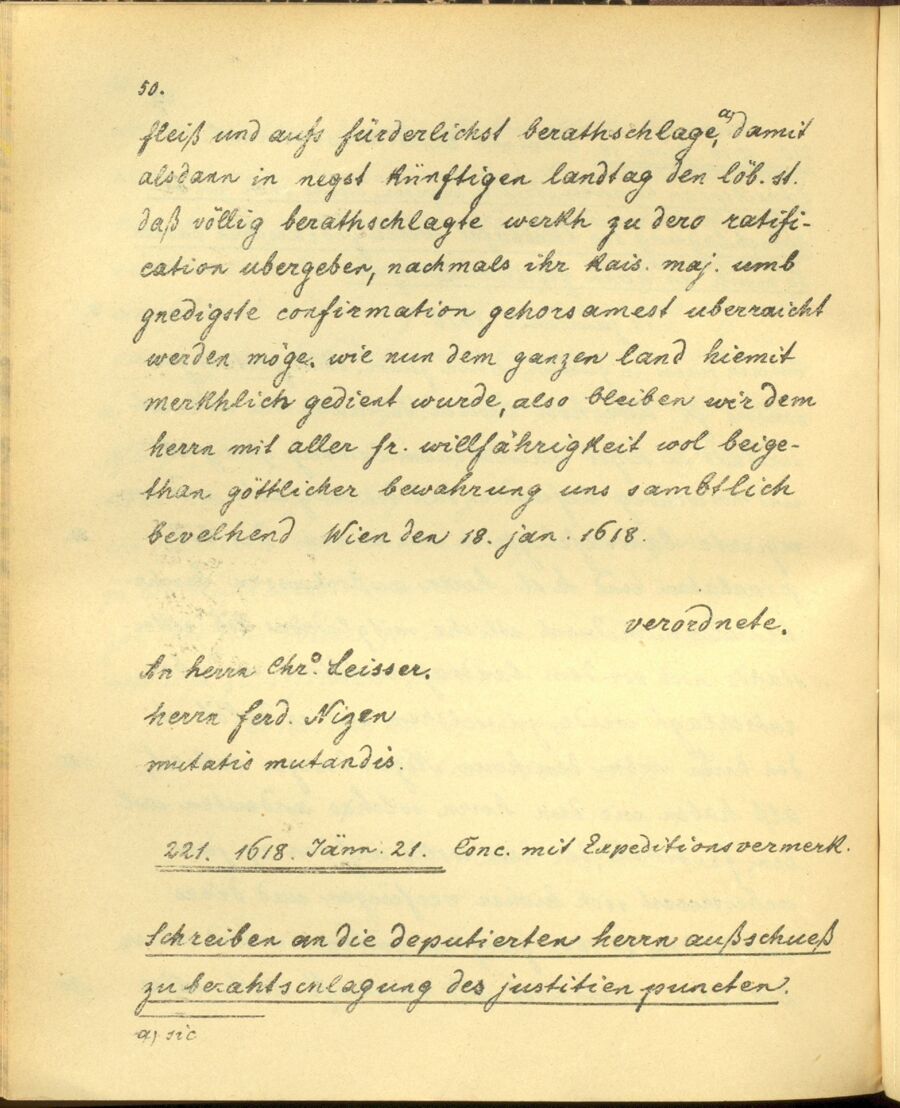 50.
fleiß und aufs fürderlichst berathschlage,a) damit
alsdann in negst künftigen landtag den löb. st.
daß völlig berathschlagte werkh zu dero ratifi-
cation ubergeben, nachmals ihr kais. maj. umb
gnedigste confirmation gehorsamest uberraicht
werden möge. wie nun dem ganzen land hiemit
merkhlich gedient wurde, also bleiben wir dem
herrn mit aller fr. willfährigkeit wol beige-
than göttlicher bewahrung uns sambtlich
bevelhend Wien den 18. jan. 1618.
verordnete.
An herrn Chro. Leisser.
herrn ferd. Nizen
mutatis mutandis.
221. 1618. Jänn. 21. Conc. mit Expeditionsvermerk.
Schreiben an die deputierten herrn außschueß
zu berahtschlagung des justitien puncten.
a) sic